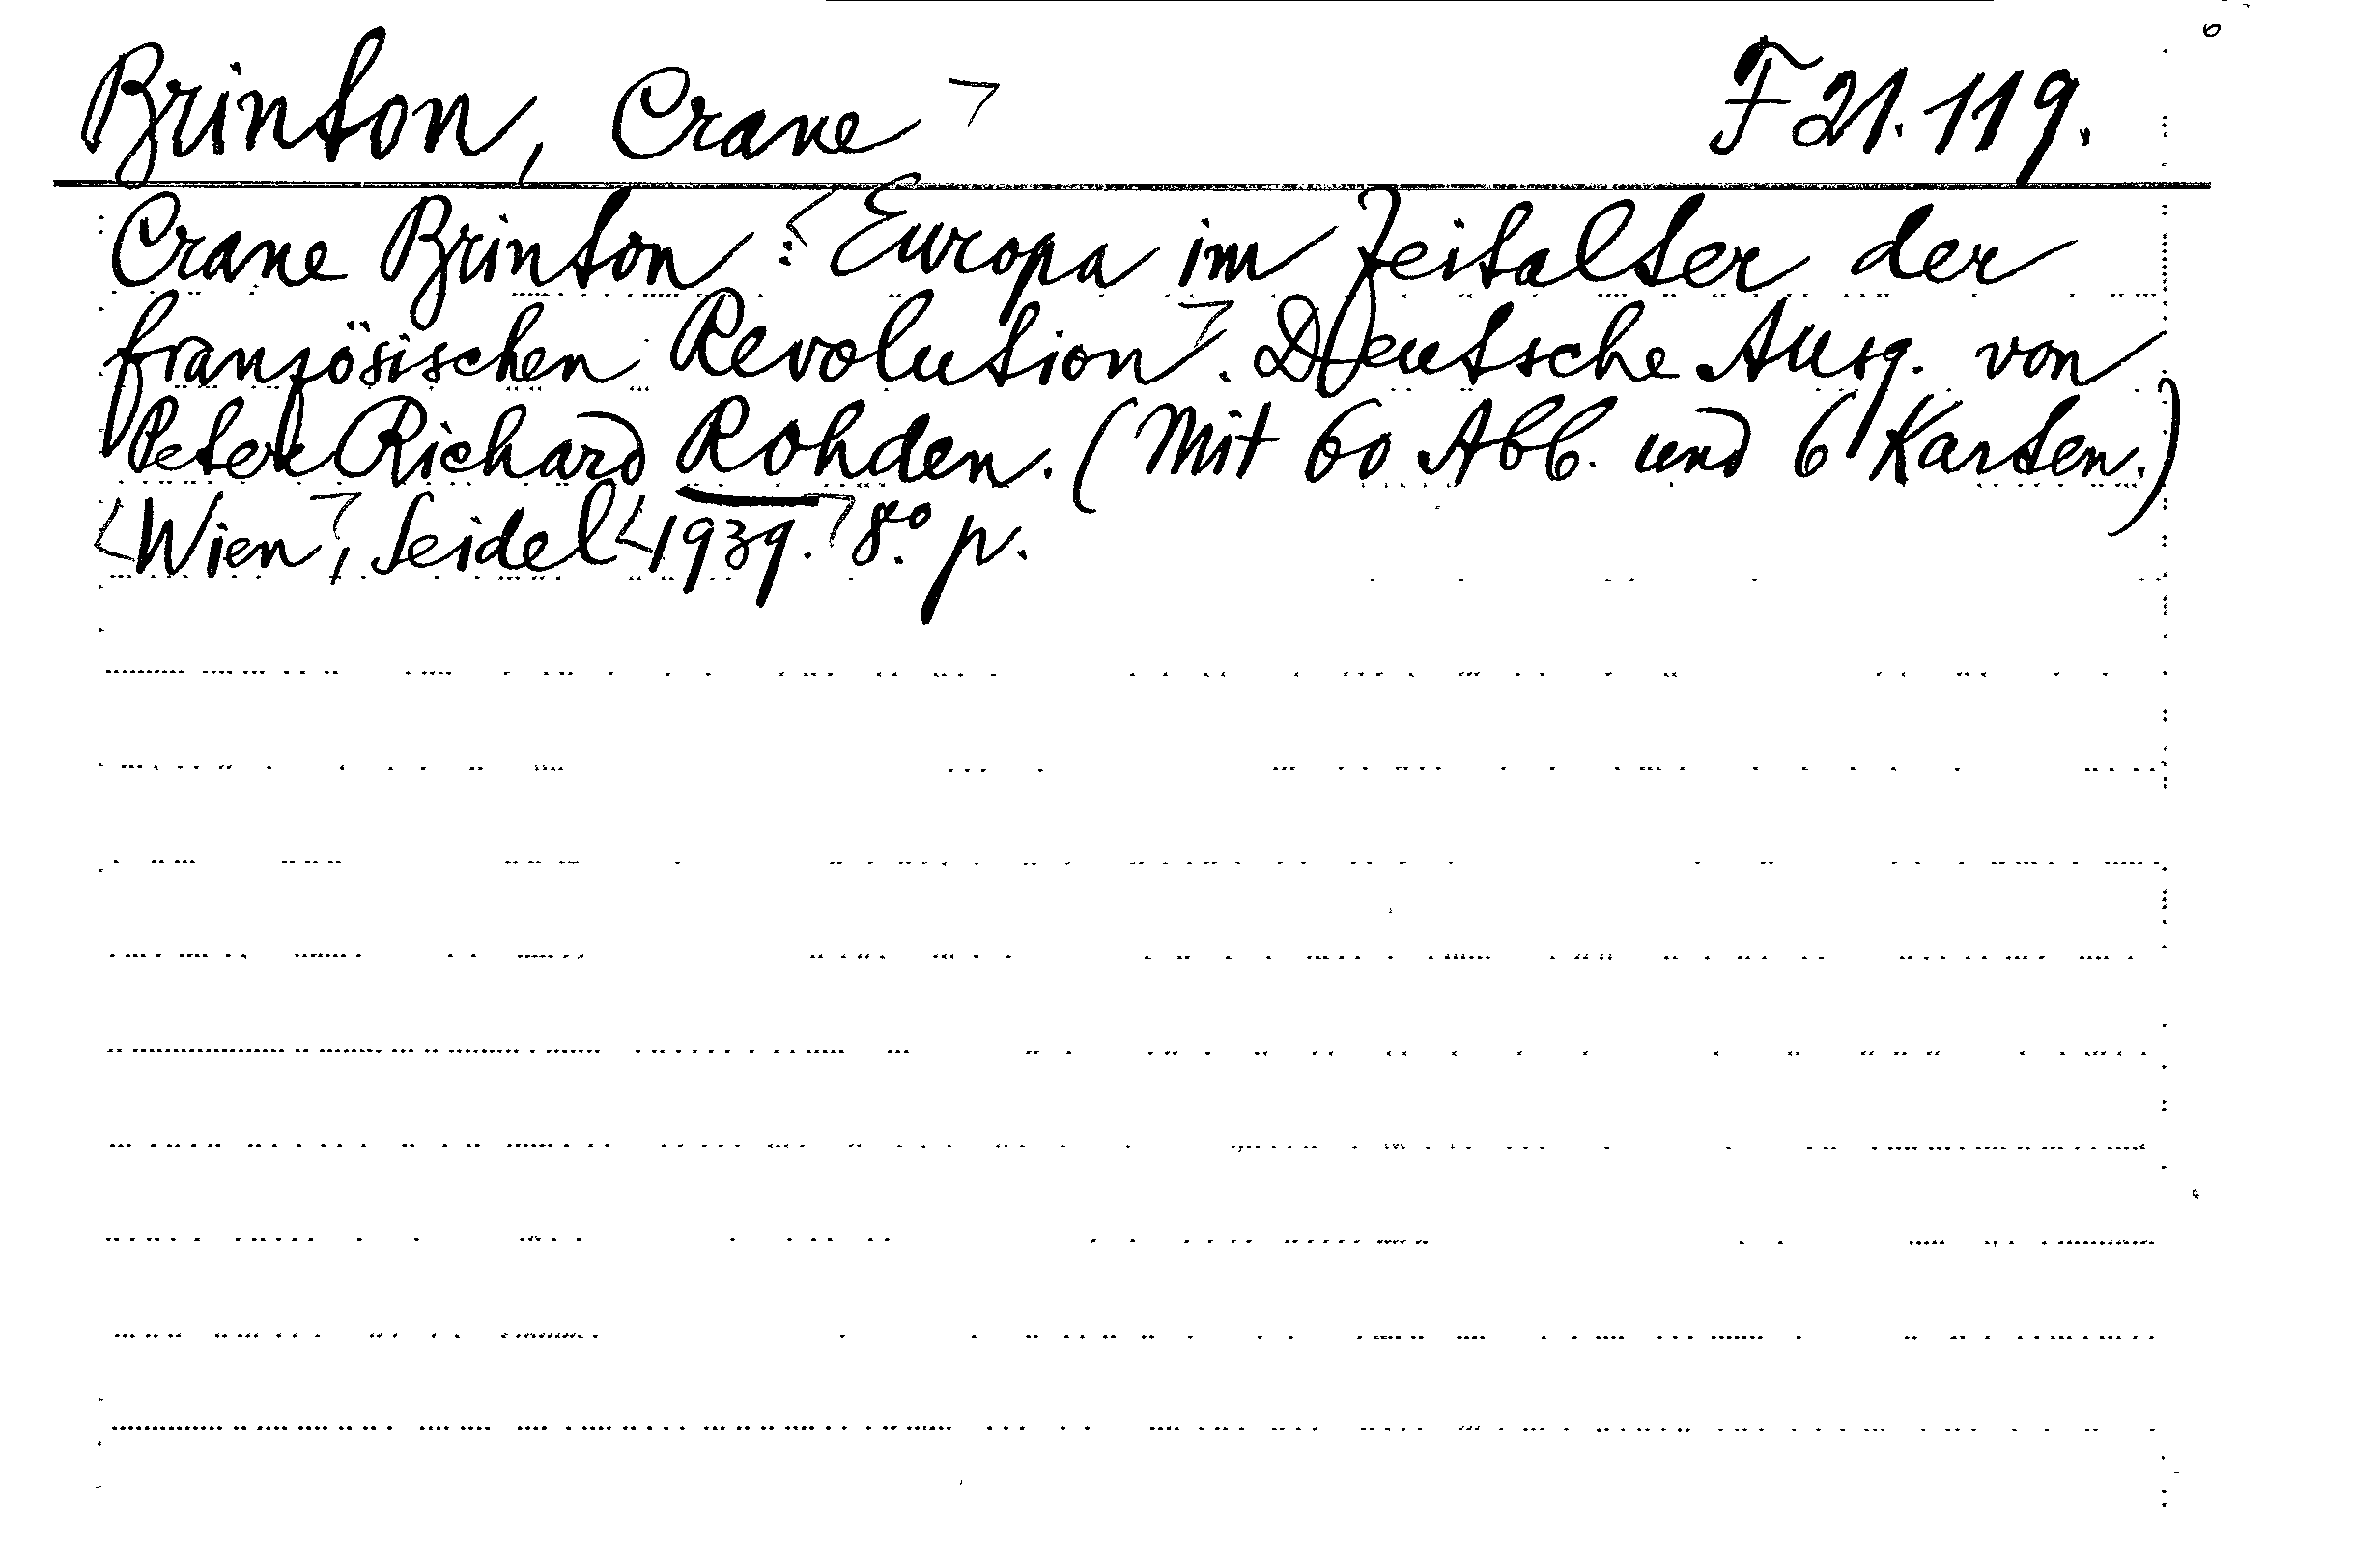 Brinton, Crane F 21.119.
Crane Brinton: Europa im Zeitalter der
französischen Revolution. Deutsche Ausg. von
Peter Richard Rohden. (Mit 60 Abb. und 6 Karten.)
Wien, Seidel 1939. 8.° p.